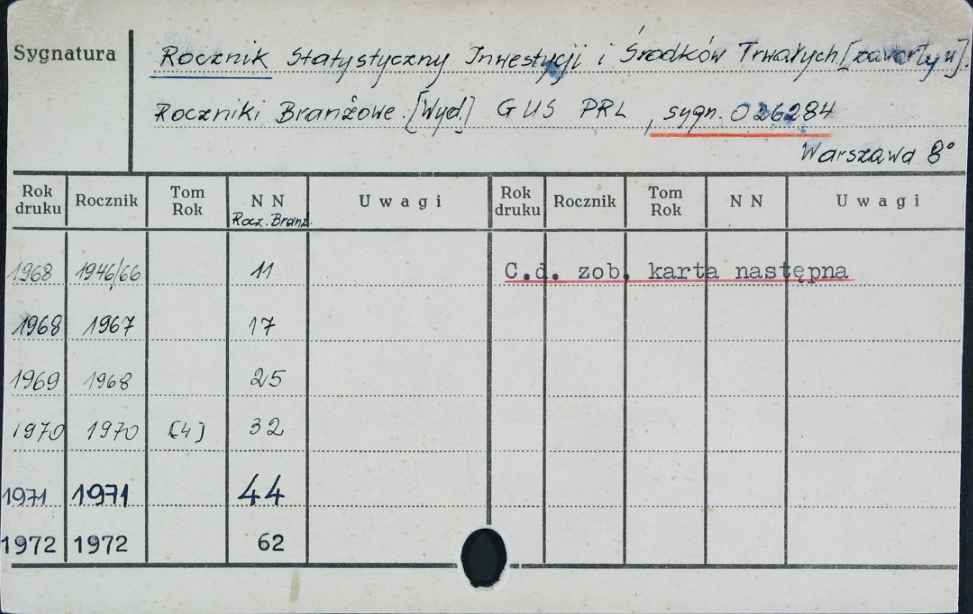 Sygnatura
Rocznik Statystyczny Inwestycji i Środków Trwałych [zawarty w]:
Roczniki Branżowe. [Wyd.] GUS PRL, sygn. 026284
Warszawa 8°
Rok druku Rocznik Tom Rok N N Rocz. Branż. Uwagi Rok druku Rocznik Tom Rok N N Uwagi
1968 1946/66 11 C.d. zob. karta następna
1968 1967 17
1969 1968 25
1970 1970 [4] 32
1971 1971 44
1972 1972 62